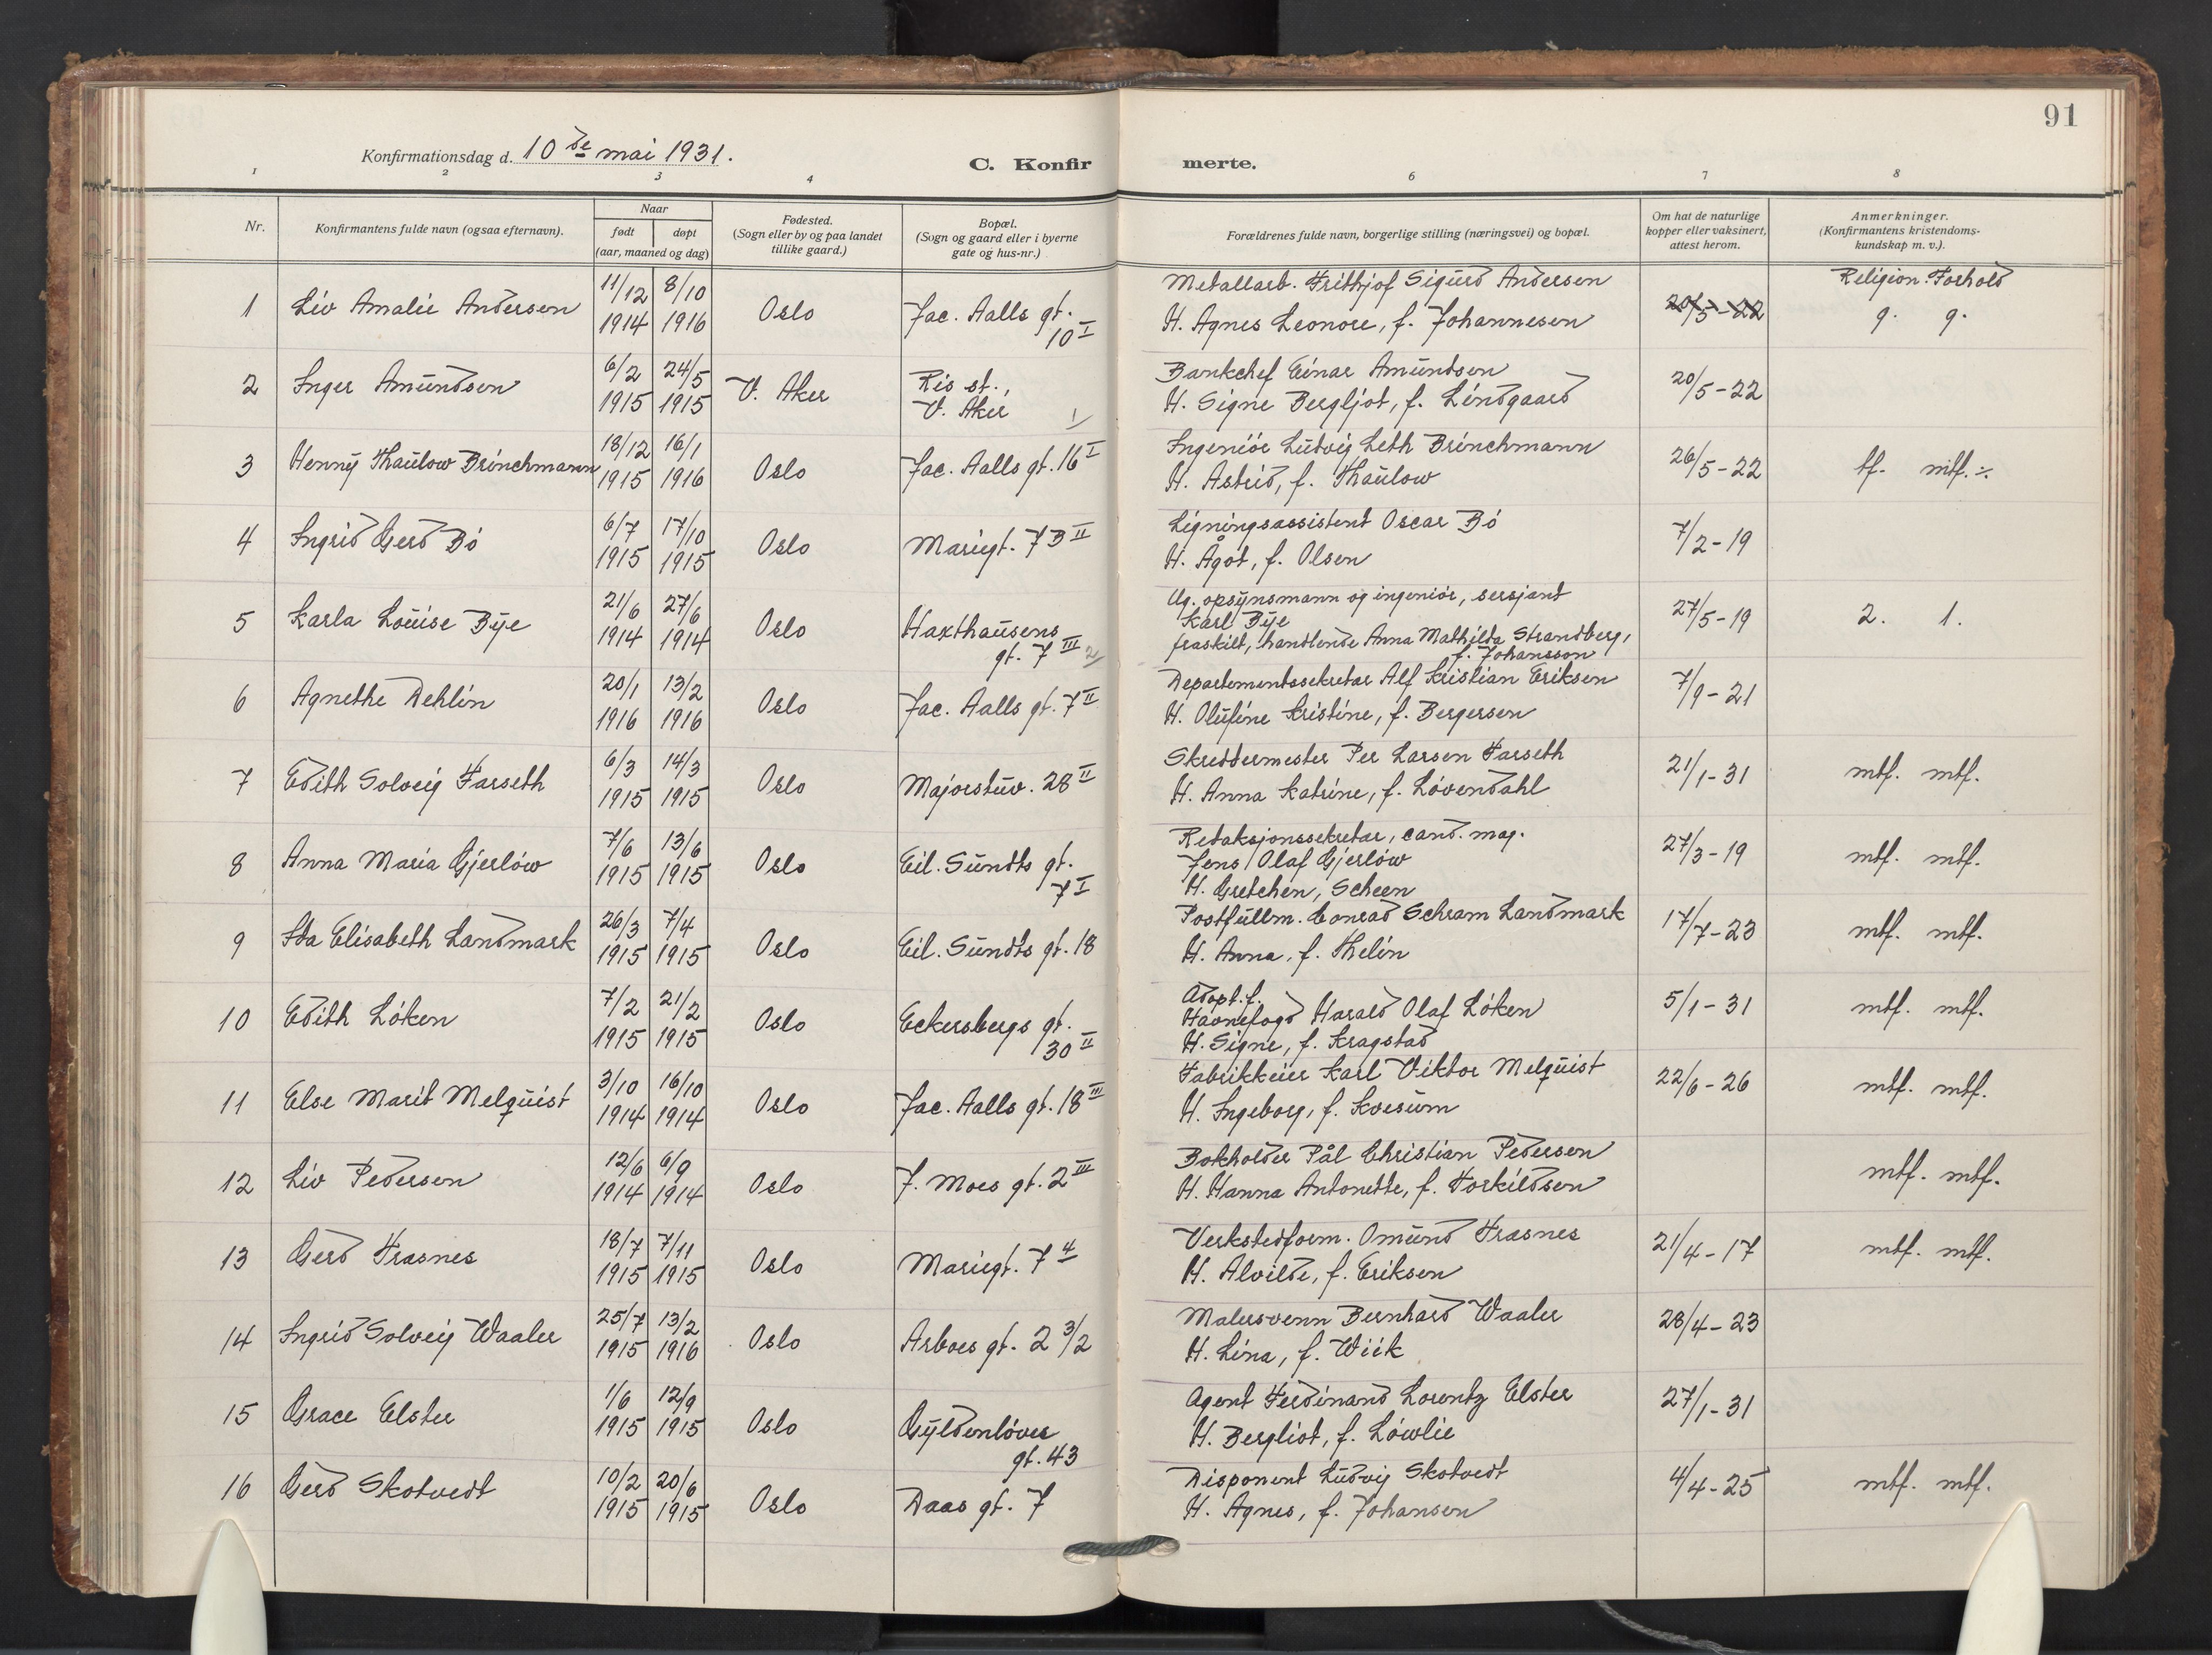 91
Konfirmationsdag d. 10de mai 1931.
C. Konfirmerte.
1 2 3 4 6 7 8
Nr.
Konfirmantens fulde navn (ogsaa efternavn).
Naar
født døpt
(aar, maaned og dag)
Fødested.
(Sogn eller by og paa landet
tillike gaard.)
Bopæl.
(Sogn og gaard eller i byerne
gate og hus-nr.)
Forældrenes fulde navn, borgerlige stilling (næringsvei) og bopæl.
Om hat de naturlige
kopper eller vaksinert,
attest herom.
Anmerkninger.
(Konfirmantens kristendoms-
kundskap m. v.).
Religion. Forhold
1 Liv Amalie Andersen 11/12 1914 8/10 1916 Oslo Jac. Aalls gt. 10 I
Metallarb. Frithjof Sigurd Andersen
H. Agnes Leonore, f. Johannesen
20/5-22 g. g.
2 Inger Amundsen 6/2 1915 24/5 1915 V. Aker Ris st., V. Aker
Bankchef Einar Amundsen
H. Signe Bergljot, f. Lindgaard
20/5-22
3 Henny Thaulow Brinchmann 18/12 1915 16/1 1916 Oslo Jac. Aalls gt. 16 I
Ingeniør Ludvig Leth Brinchmann
H. Astrid, f. Thaulow
26/5-22 tf. mtf. ÷
4 Ingrid Gerd Bö 6/7 1915 17/10 1915 Oslo Mariegt. 73 II
Ligningsassistent Oscar Bö
H. Ågot, f. Olsen
7/2-19
5 Karla Louise Bye 21/6 1914 27/6 1914 Oslo Haxthausens gt. 7 III
Ug. opsynsmann og ingeniör, sersjant
Karl Bye
fraskilt, handlende Anna Mathilda Strandberg,
f. Johansson
27/5-19 2. 1.
6 Agnethe Dehlin 20/1 1916 13/2 1916 Oslo Jac. Aalls gt. 7 II
Departementssekretær Alf Kristian Eriksen
H. Olufine Kristine, f. Bergersen
7/9-21
7 Edith Solveig Farseth 6/3 1915 14/3 1915 Oslo Majorstuv. 28 II
Skreddermester Per Larsen Farseth
H. Anna Katrine, f. Lövendahl
21/1-31 mtf. mtf.
8 Anna Maria Gjerlöw 7/6 1915 13/6 1915 Oslo Eil. Sundts gt. 7 I
Redaksjonssekretær, cand. mag.
Jens Olaf Gjerlöw
H. Gretchen, Scheen
27/3-19 mtf. mtf.
9 Ida Elisabeth Landmark 26/3 1915 7/4 1915 Oslo Eil. Sundts gt. 18
Postfullm. Conrad Schram Landmark
H. Anna, f. Thelin
17/7-23 mtf. mtf.
10 Edith Löken 7/2 1915 21/2 1915 Oslo Eckersbergs gt. 30 II
Adopt. f.
Havnefogd Harald Olaf Löken
H. Signe, f. Kragstad
5/1-31 mtf. mtf.
11 Else Marit Melquist 3/10 1914 16/10 1914 Oslo Jac. Aalls gt. 18 III
Fabrikkeier Karl Viktor Melquist
H. Ingeborg, f. Kvesum
22/6-26 mtf. mtf.
12 Liv Pedersen 12/6 1914 6/9 1914 Oslo J. Moes gt. 2 III
Bokholder Pål Christian Pedersen
H. Hanna Antonette, f. Torkildsen
mtf. mtf.
13 Gerd Træsnes 18/7 1915 7/11 1915 Oslo Mariegt. 7 4
Verkstedform. Omund Træsnes
H. Alvilde, f. Eriksen
21/4-17 mtf. mtf.
14 Ingrid Solveig Waaler 25/7 1915 13/2 1916 Oslo Arboes gt. 2 3/2
Malersvenn Bernhard Waaler
H. Lina, f. Wiik
28/4-23
15 Grace Elster 1/6 1915 12/9 1915 Oslo Gyldenlöves gt. 43
Agent Ferdinand Lorentz Elster
H. Bergliot, f. Löwlie
27/1-31
16 Gerd Skotvedt 10/2 1915 20/6 1915 Oslo Daas gt. 7
Disponent Ludvig Skotvedt
H. Agnes, f. Johansen
4/4-25 mtf. mtf.